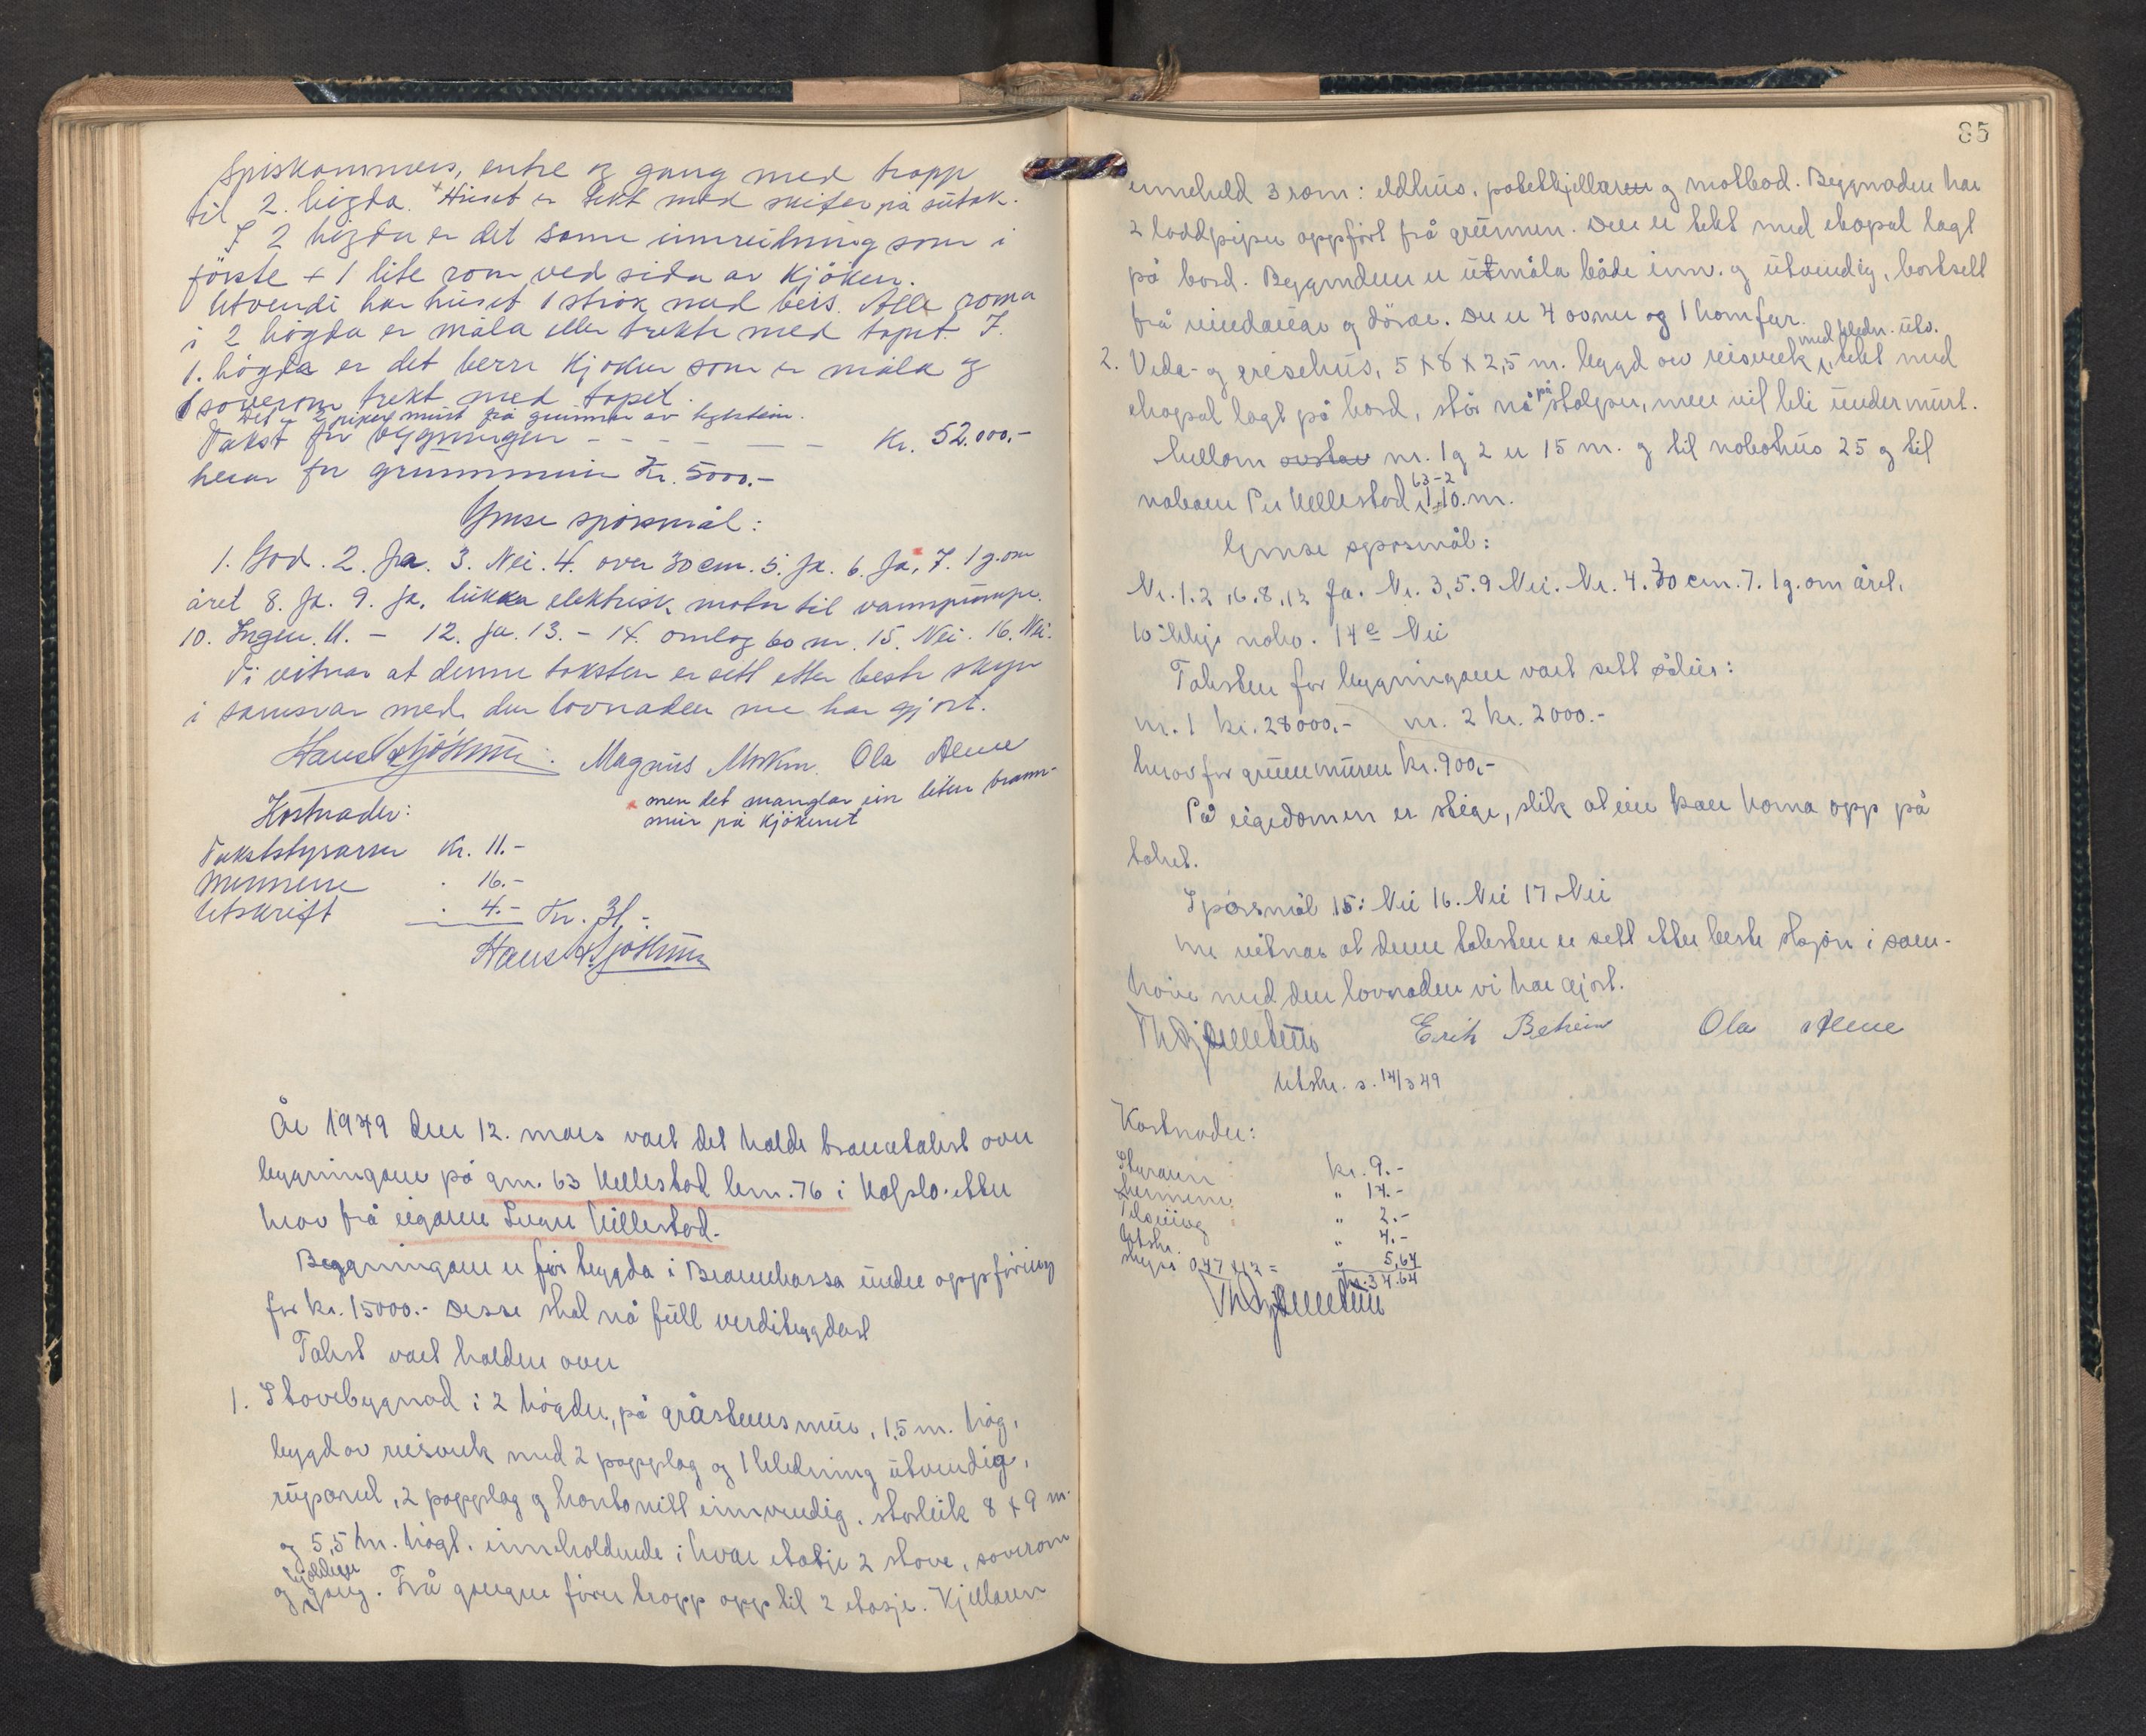 Spiskammers, entre og gang med trapp
til 2. högda. + Huset er tekt med skifer på sutak.
I 2 högda er det same innreiing som i
förste + 1 lite rom ved sida av kjöken.
Utvendi har huset 1 strok med beis. Alle roma
i 2 högda er måla eller trekte med tapet. I
1. högda er det berre kjöken som er måla og
1 soverom trekt med tapet.
Det er 2 piper murt frå grunnen av teglstein.
Takst for bygningen - - - - - - Kr. 52.000.-
herav for grunnmuren Kr. 5000.-
Ymse spörsmål:
1. God. 2. Ja. 3. Nei. 4. over 30 cm. 5. Ja. 6. Ja, 7. 1 g. om
året 8. Ja. 9. Ja, lukka elektrisk motor til vannpumpe.
10. Ingen. 11. - 12. Ja. 13. - 14. omlag 60 m. 15. Nei. 16. Nei.
Vi vitnar at denne taksten er sett etter beste skyn
i samsvar med den lovnaden me har gjort.
Magnus Ola Alme
men det manglar ein liten brann-
mur på kjökenet
Kostnader:
Takststyraren Kr. 11.-
Mennene " 16.-
Utskrift " 4.- Kr. 31.-
År 1949 den 12. mars vart det halde branntakst over
bygningane på gnr. 63 Kvellestad bnr. 76 i Hafslo etter
krav frå eigaren Kvellestad.
Bygningane er för trygda i Brannkassa under oppföring
for kr. 15000.- Desse skal nå full verditrygdast
Takst vart halden over
1. Stovebygnad i 2 högder, på gråsteinsmur, 1,5 m. høg,
bygd av reisverk med 2 papplag og 1 kledning utvendig,
rupanel, 2 papplag og huntonitt innvendig. storleik 8 x 9 m.
og 5,5 m. högt. inneholdende i hvar etasje 2 stove, soverom
kjökken
og gang. Frå gangen förer trapp opp til 2 etasje. Kjellaren
85
inneheld 3 rom: eldhus, potetkjellaren og matbod. Bygnaden har
2 loddpiper oppfört frå grunnen. Den er tekt med etapal lagt
på bord. Bygnaden er umåla både inn. og utvendig, bortsett
frå vindauge og dörar. Der er 4 ovner og 1 komfyr.
med kledn. utv.
2. Vede- og grisehus, 5 x 8 x 2,5 m. bygd av reisverk, tekt med
etapal lagt på bord, står nå på stolper, men vil bli undermurt.
Mellom nr. 1 og 2 er 15 m. og til nabohus 25 og til
63-2
naboen Per Kvellestad 110. m.
Ymse spörsmål:
Nr. 1. 2, 6. 8, 12 Ja. Nr. 3, 5. 9 Nei. Nr. 4. 30 cm. 7. 1 g. om året,
10 ikkje nabo. 14 Nei
Taksten for bygningane vart sett såleis:
nr. 1 kr. 28000.- nr. 2 kr. 2000.-
herav for grunnmuren kr. 900,-
På eigedomen er stige, slik at ein kan koma opp på
taket.
Spörsmål 15: Nei 16. Nei 17. Nei
Me vitnar at denne taksten er sett etter beste skjön i sam-
höve med den lovnaden vi har gjort.
Erik Ola Alme
Utskr. s. 14/3 49
Kostnader:
Styraren kr. 9.-
Mennene " 14.-
Tilseiing " 2.-
Utskr. " 4.-
Skyss 0,47 x 12 = " 5,64
kr. 34.64